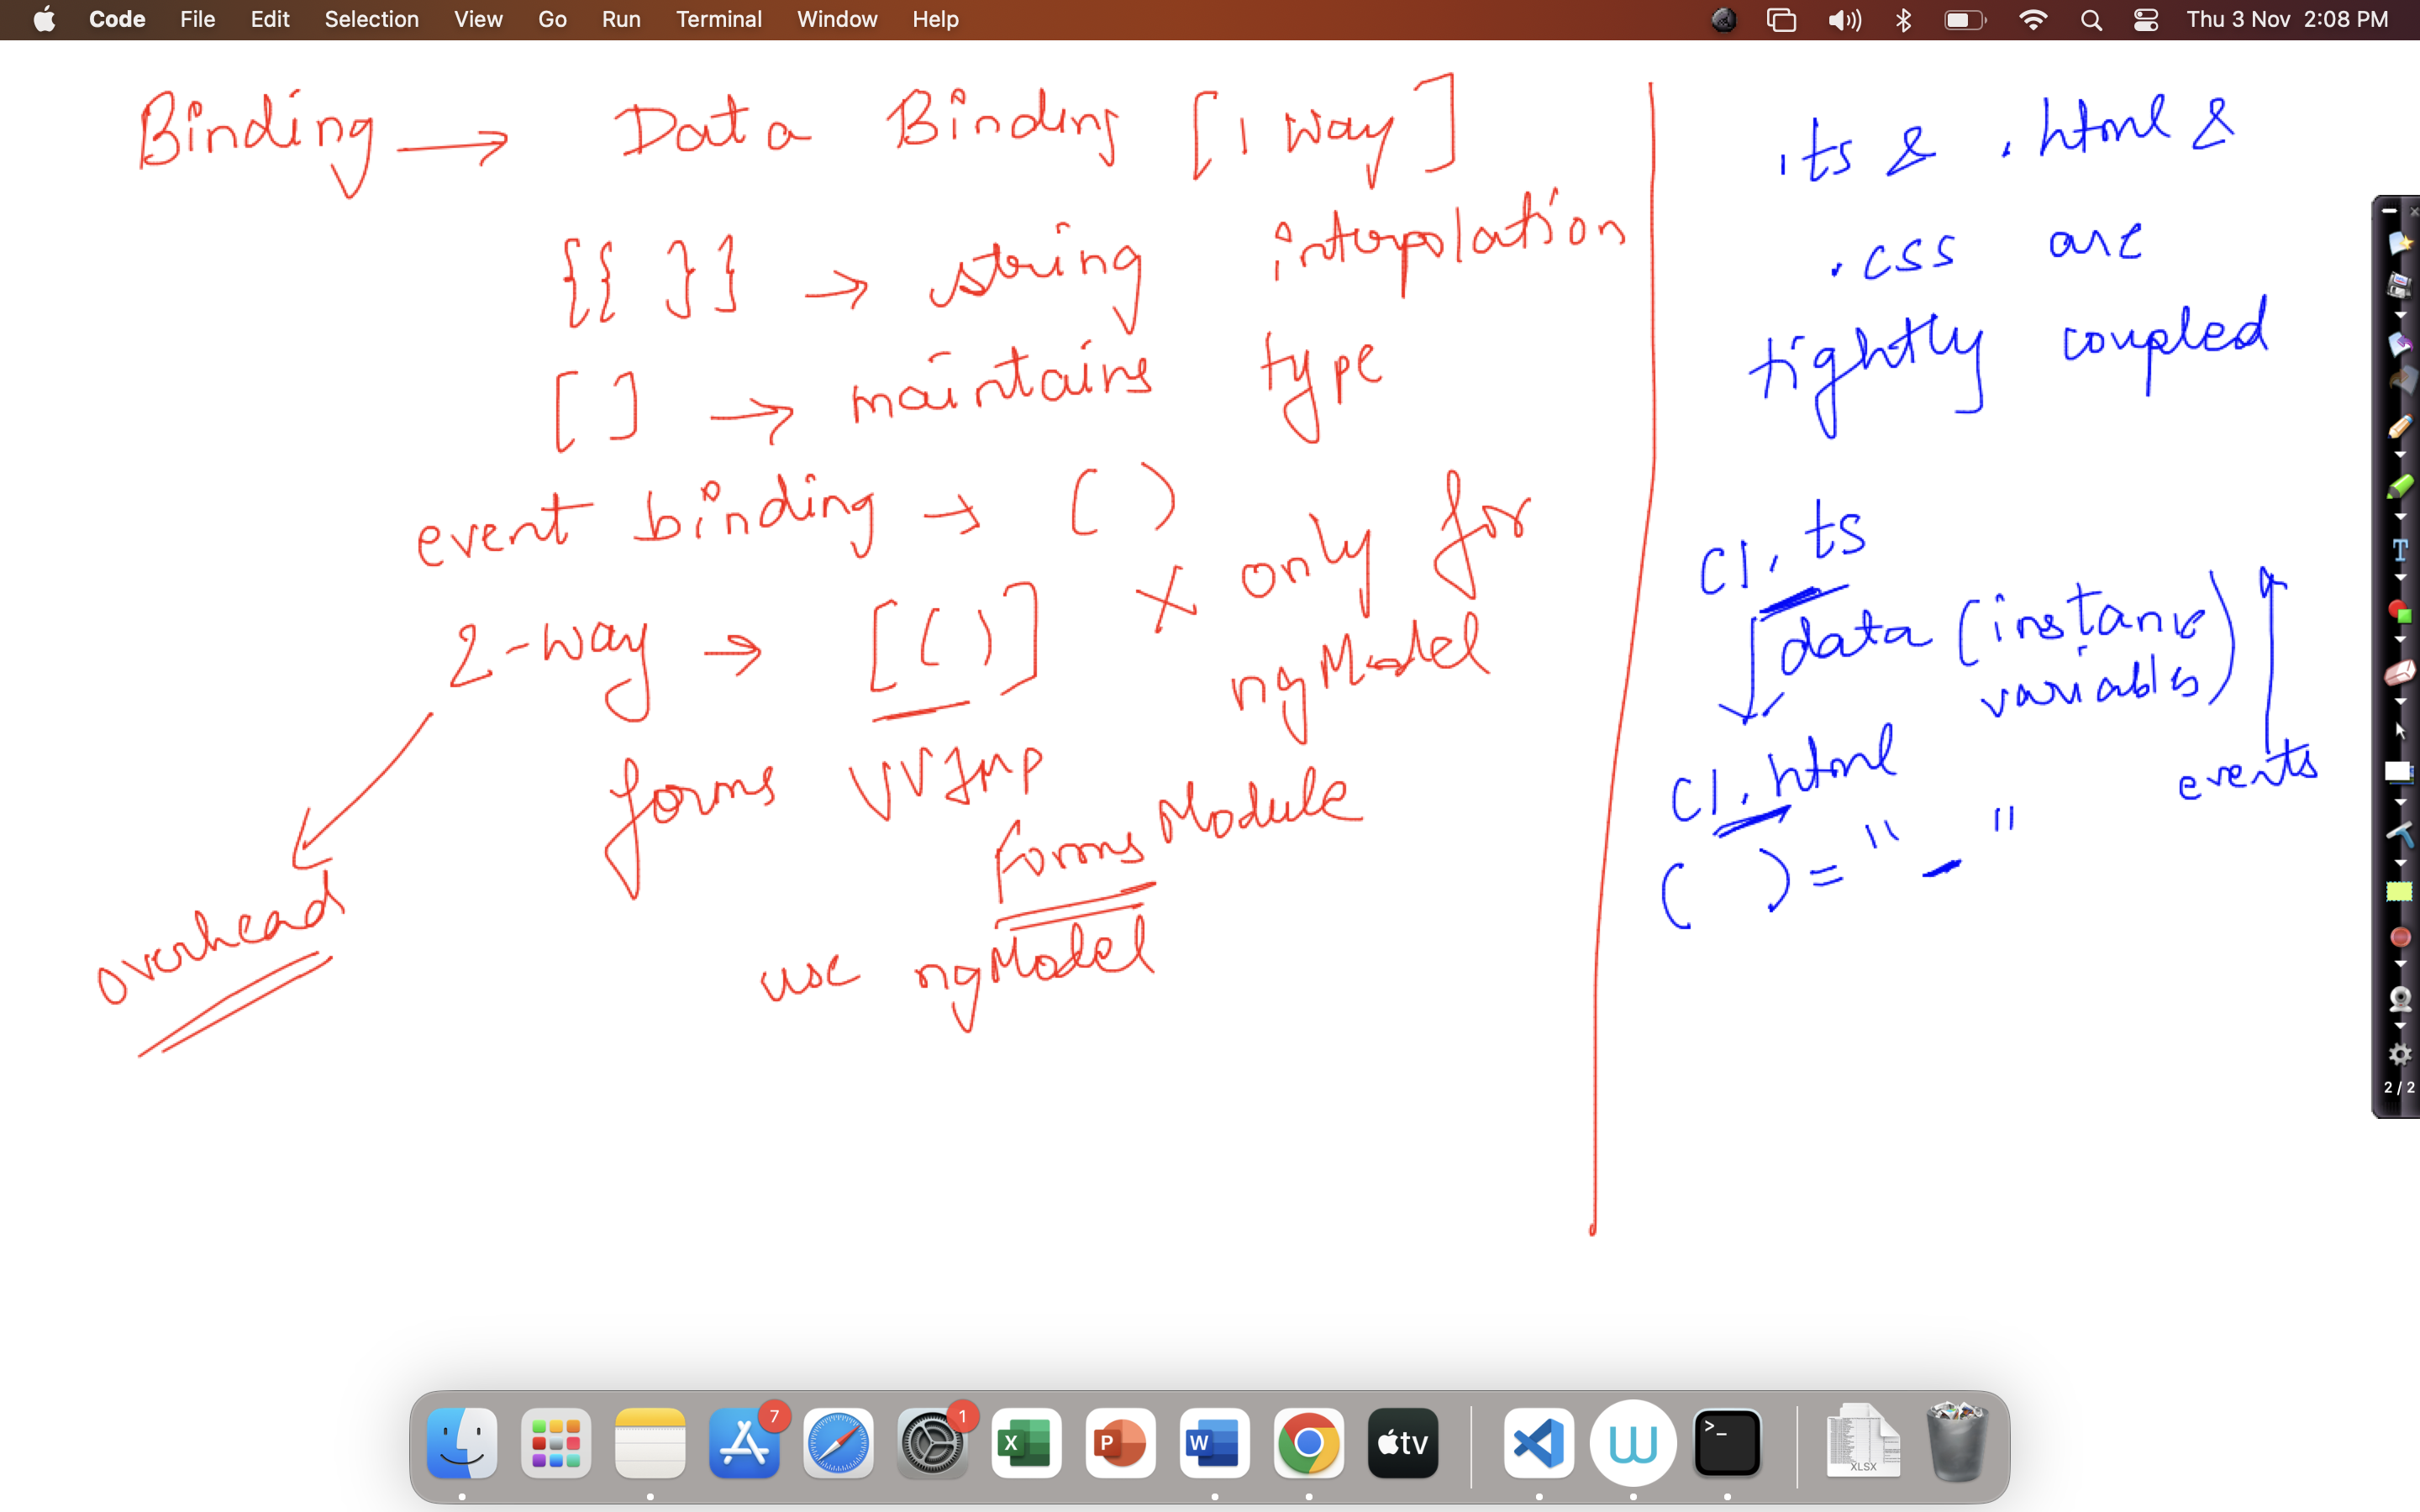 Code File Edit Selection View Go Run Terminal Window Help Thu 3 Nov 2:08 PM
Binding → Data Binding [1 way]
{{ }} → string interpolation
[ ] → maintains type
event binding → ( )
2-way → [( )] X only for
ngModel
forms VVImp
Forms Module
use ngModel
overhead
.ts & .html &
.css are
tightly coupled
C1.ts
data (instance
variables)
C1.html
events
( ) = " - "
2 / 2
7
1
X
P
W
tv
>_
XLSX